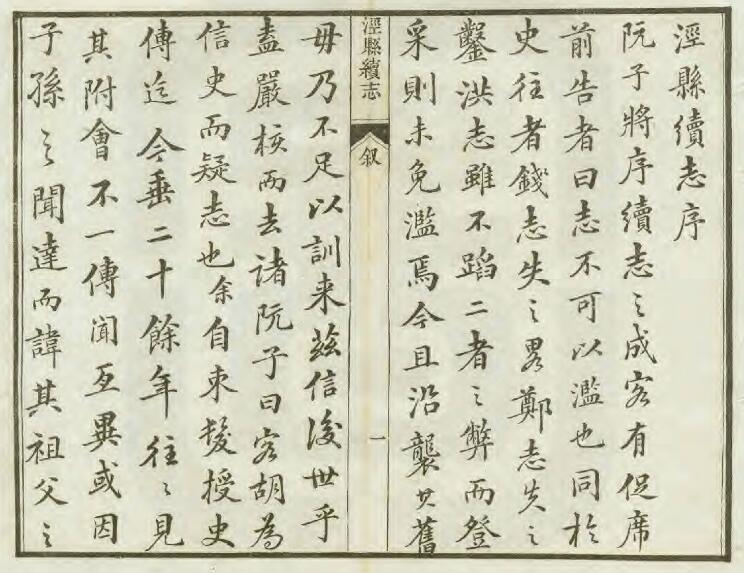 涇縣續志序
阮子將序續志之成客有促席
前告者曰志不可以濫也同於
史往者錢志失之畧鄭志失之
鑿洪志雖不蹈二者之弊而登
采則未免濫焉今且沿襲其舊
涇縣續志
叙
一
毋乃不足以訓来茲信後世乎
盍嚴核而去諸阮子曰客胡為
信史而疑志也余自束髮授史
傳迄今垂二十餘年往〻見
其附會不一傳聞互異或因
子孫之聞達而諱其祖父之